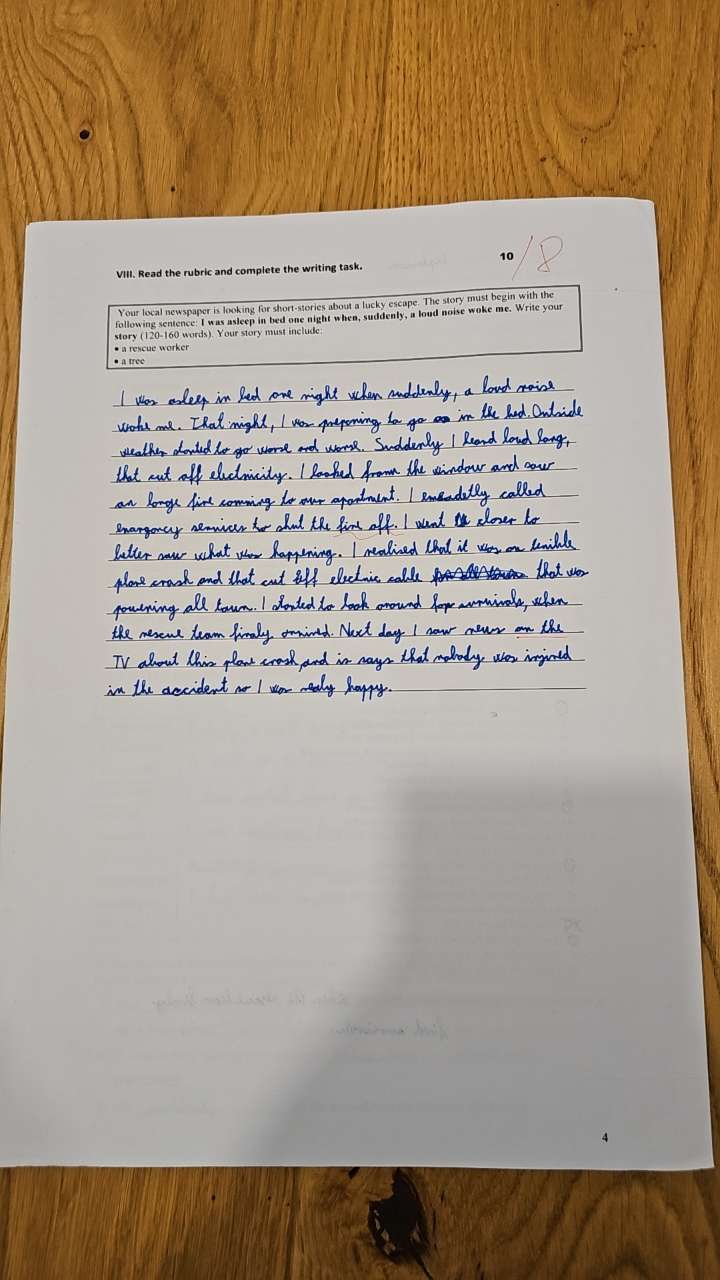 VIII. Read the rubric and complete the writing task.
10 / 8
Your local newspaper is looking for short-stories about a lucky escape. The story must begin with the
following sentence: I was asleep in bed one night when, suddenly, a loud noise woke me. Write your
story (120-160 words). Your story must include:
• a rescue worker
• a tree
I was asleep in bed one night when suddenly, a loud noise
woke me. That night, I was preponing to go in the bed. Outside
weather started to go worse and worse. Suddenly I heard loud bang,
that cut off electricity. I looked from the window and saw
an longe fire comming to our apartment. I emeadetly called
emargancy services to shut the fire off. I went closer to
better saw what was happening. I realised that it was an terrible
plane crash and that cut off electric cable that was
powering all town. I started to look around for survivals, when
the rescue team finaly arrived. Next day I saw news on the
TV about this plane crash, and is says that nobody was injured
in the accident so I was realy happy.
4